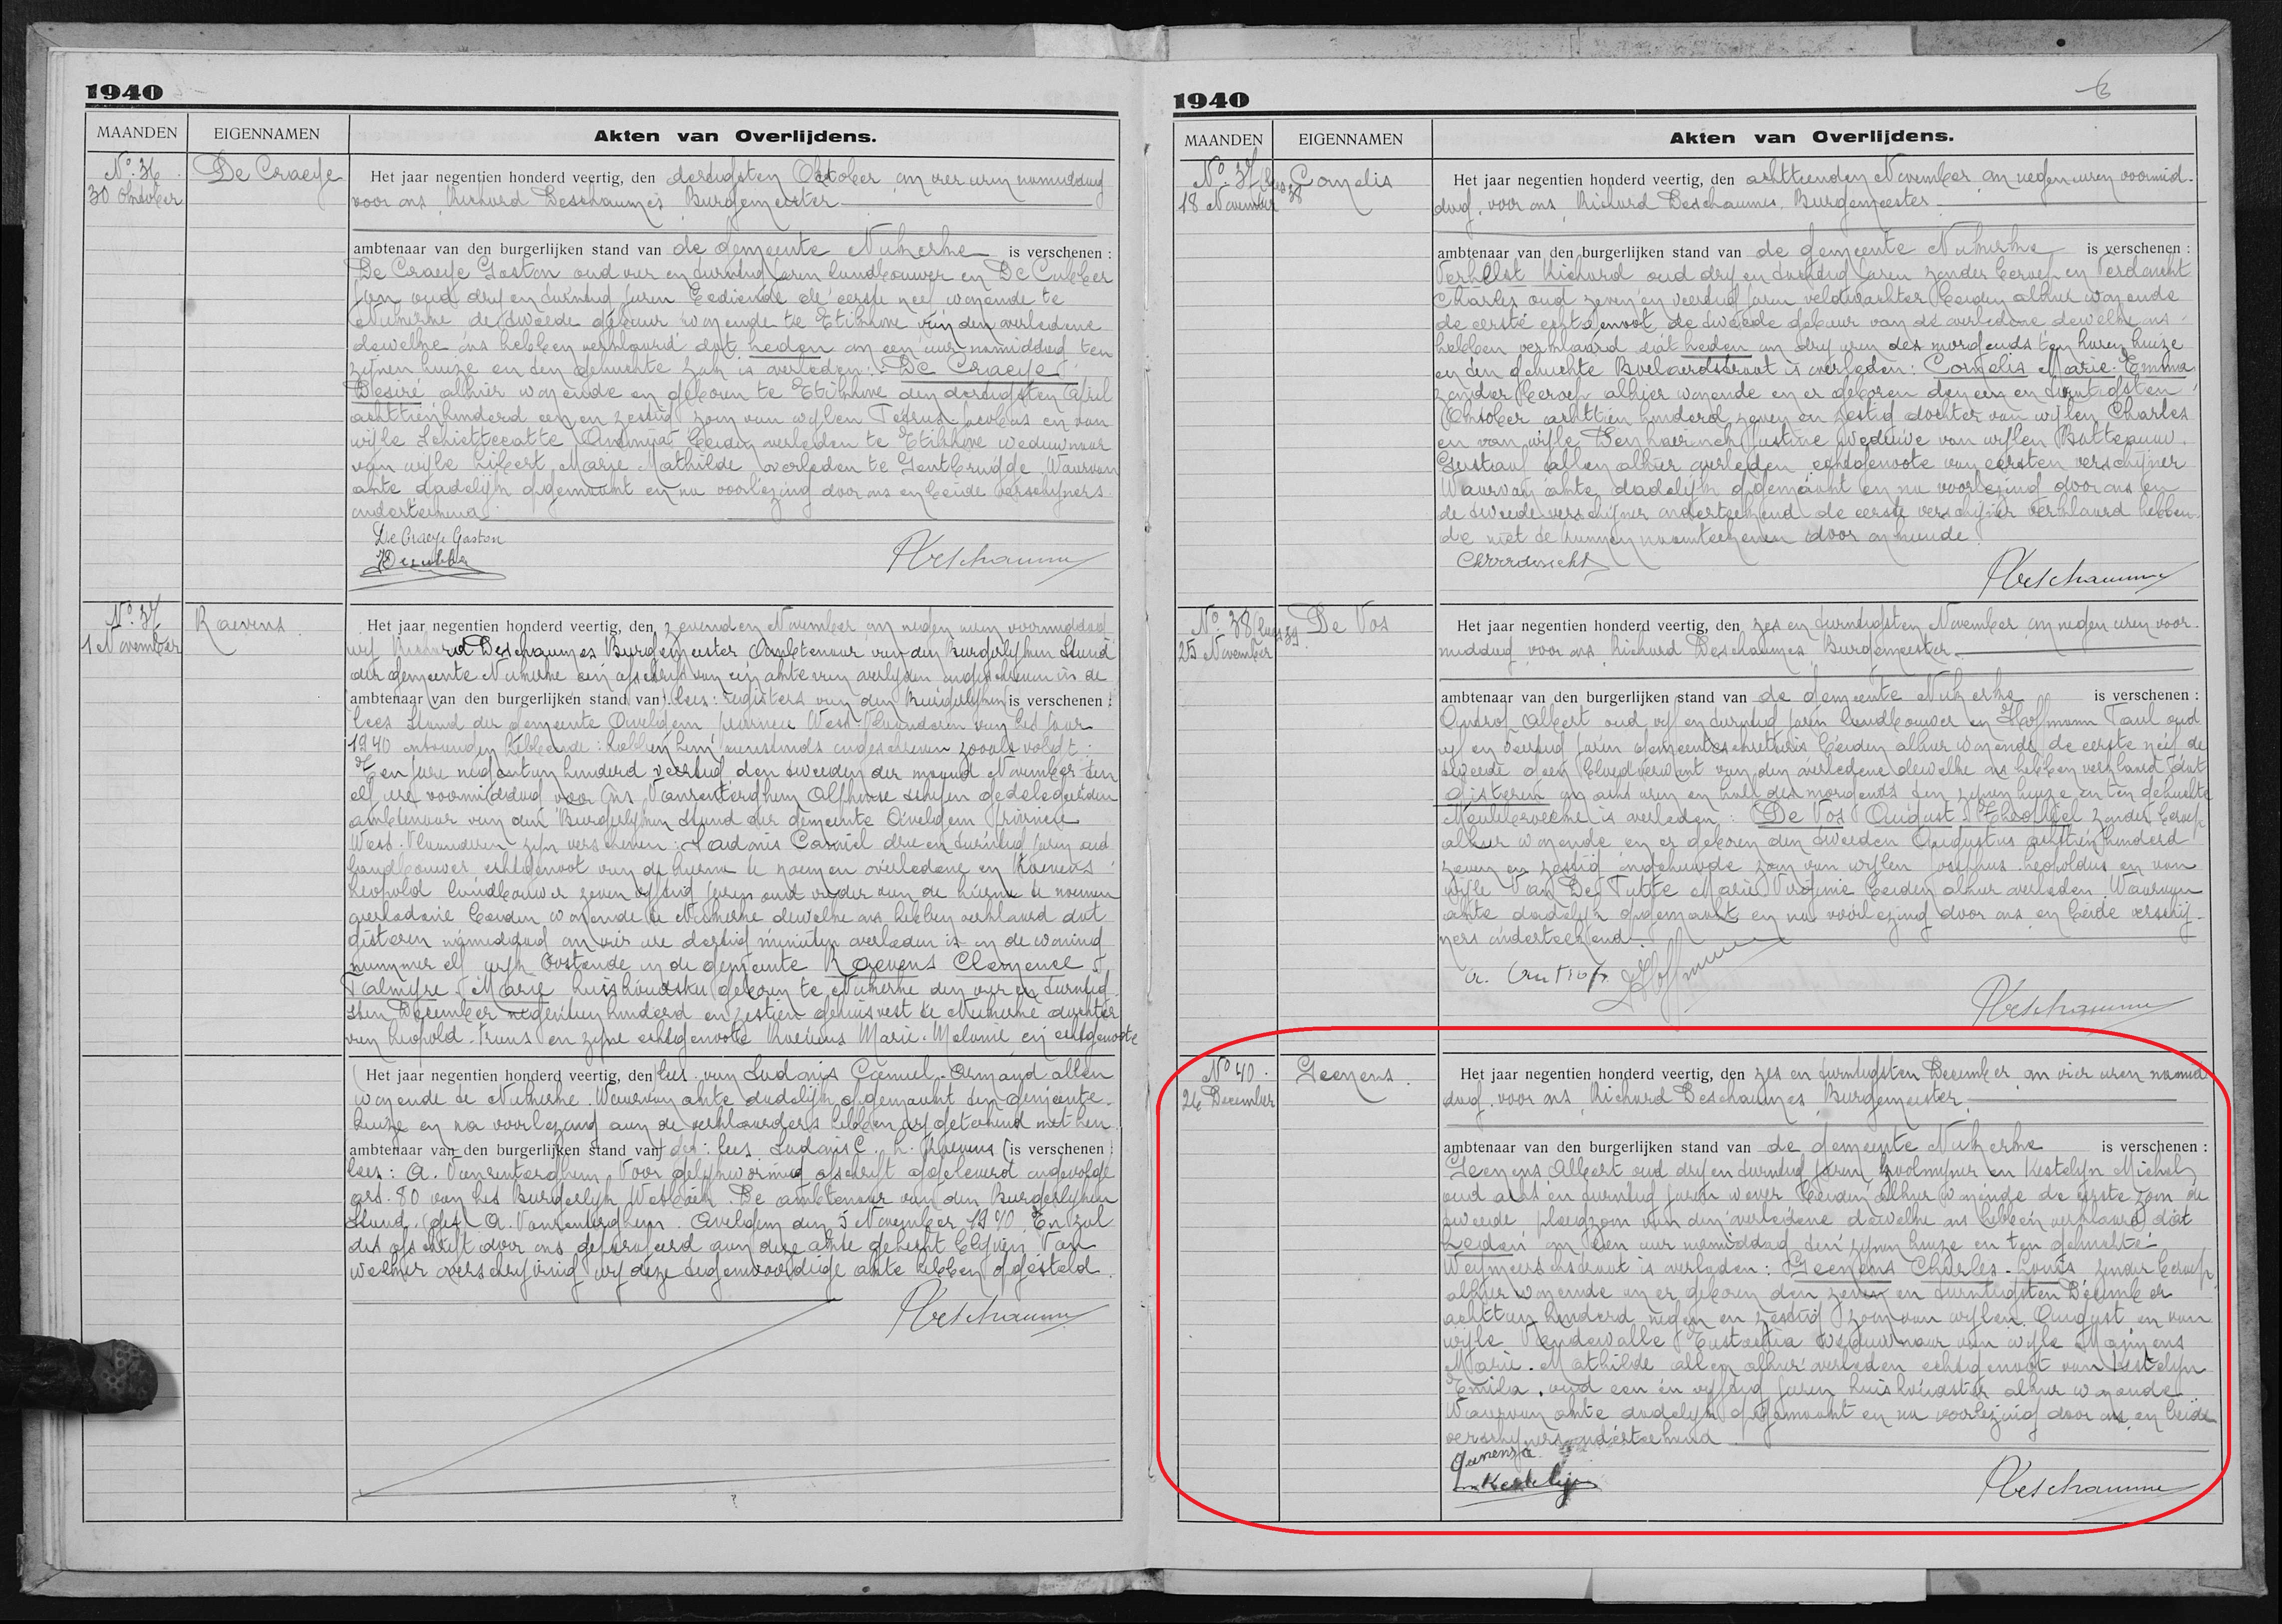 1940
MAANDEN
EIGENNAMEN
Akten van Overlijdens.
No. 36
30 Oktober
De Craeye
Het jaar negentien honderd veertig, den dertigsten Oktober om vier uren namiddag
voor ons Richard Deschaumes Burgemeester
ambtenaar van den burgerlijken stand van de gemeente Nukerke is verschenen :
De Craeye Gaston oud vier en twintig jaren landbouwer en De Culber
Jan oud dry en twintig jaren bediende de eerste neef wonende te
Nukerke de tweede gebuur wonende te Etikhove van den overledene
dewelke ons hebben verklaard dat heden om een uur namiddag ten
zijnen huize en den gehuchte Zak is overleden : De Craeye
Desiré alhier wonende en geboren te Etikhove den dertigsten April
achttien honderd een en zestig zoon van wijlen Petrus Jacobus en van
wijle Schietecatte Anna beiden overleden te Etikhove weduwnaar
van wijle Libert Marie Mathilde overleden te Gentbrugge Waarvan
akte dadelijk opgemaakt en na voorlezing door ons en beide verschijners
onderteekend
De Craeye Gaston
No. 37
1 November
Raevens
Het jaar negentien honderd veertig, den zevenden November om negen uren voormiddag
wij Richard Deschaumes Burgemeester Ambtenaar van den Burgerlijken Stand
der gemeente Nukerke een afschrift van een akte van overlijden ingeschreven in de
(ambtenaar van den burgerlijken stand van) lees : registers van den Burgerlijken (is verschenen :
lees Stand der gemeente Avelgem provincie West-Vlaanderen van het jaar
1940 ontvangen hebbende : hebben hem navenstaands ingeschreven zooals volgt :
Ten jare negentien honderd veertig, den tweeden der maand November ten
elf ure voormiddag voor ons Vanrenterghem Alphonse schepen gedelegeerden
ambtenaar van den Burgerlijken Stand der gemeente Avelgem provincie
West-Vlaanderen zijn verschenen : Ladonis Camiel drie en twintig jaren oud
landbouwer echtgenoot van de hierna te noemen overledene en Raevens
Leopold landbouwer zeven vijftig jaren oud vader van de hierna te noemen
overledene beiden wonende te Nukerke dewelke ons hebben verklaard dat
gisteren namiddag om vier ure dertig minuten overleden is in de woning
nummer elf wijk Oostende in de gemeente Raevens Clemence
Palmyre Marie huishoudster geboren te Nukerke den vier en twintig
sten December negentien honderd en zestien gehuisvest te Nukerke dochter
van Leopold Frans en zijne echtgenoote Roelens Marie-Melanie en echtgenoote
(Het jaar negentien honderd veertig, den) lees van Ladonis Camiel-Armand allen
wonende te Nukerke Waarvan akte dadelijk opgemaakt ten gemeente-
huize en na voorlezing aan de verklaarders hebben wij geteekend met hen
ambtenaar van den burgerlijken stand van) get : lees Ladonis C. L. Raevens (is verschenen :
lees : A. Vanrenterghem. Voor gelijkvormig afschrift afgeleverd ingevolge
art. 80 van het Burgerlijk Wetboek. De ambtenaar van den Burgerlijken
Stand. (get) A. Vanrenterghem. Avelgem den 5 November 1940. En zal
dit afschrift door ons geparafeerd aan deze akte gehecht blijven Van
welker overschrijving wij deze tegenwoordige akte hebben opgesteld
1940
6
MAANDEN
EIGENNAMEN
Akten van Overlijdens.
No. 37 lees 38
18 November
Cornelis
Het jaar negentien honderd veertig, den achttienden November om negen uren voormid-
dag, voor ons Richard Deschaumes, Burgemeester
ambtenaar van den burgerlijken stand van de gemeente Nukerke is verschenen :
Verhelst Richard oud dry en twintig jaren zonder beroep en Verdonckt
Charles oud zeven en veertig jaren veldwachter beiden alhier wonende
de eerste echtgenoot de tweede gebuur van de overledene dewelke ons
hebben verklaard dat heden om dry uren des morgends ten haren huize
en den gehuchte Boelaardstraat is overleden : Cornelis Marie-Emma
zonder beroep alhier wonende en er geboren den een en twintigsten
Oktober achttien honderd zeven en zestig dochter van wijlen Charles
en van wijle Denhaerinck Justine weduwe van wijlen Batteauw
Gustaaf allen alhier overleden echtgenoote van eersten verschijner
Waarvan akte dadelijk opgemaakt en na voorlezing door ons en
de tweede verschijner onderteekend de eerste verschijner verklaard hebben-
de niet te kunnen naamteekenen door onkunde
No. 38 lees 39
25 November
De Vos
Het jaar negentien honderd veertig, den zes en twintigsten November om negen uren voor-
middag voor ons Richard Deschaumes Burgemeester
ambtenaar van den burgerlijken stand van de gemeente Nukerke is verschenen :
Ontrop Albert oud vijf en twintig jaren landbouwer en Hoffmann Paul oud
vijf en veertig jaren gemeentesekretaris beiden alhier wonende de eerste neef de
tweede geen bloedverwant van den overledene dewelke ons hebben verklaard dat
gisteren om acht uren en half des morgends ten zijnen huize en ten gehuchte
is overleden : De Vos August-Theophiel zonder beroep
alhier wonende en er geboren den tweeden Augustus achttien honderd
zeven en zestig ongehuwde zoon van wijlen Josephus Leopoldus en van
wijle Van De Putte Marie Virginie beiden alhier overleden Waarvan
akte dadelijk opgemaakt en na voorlezing door ons en beide verschij-
ners onderteekend
No 40
26 December
Geenens
Het jaar negentien honderd veertig, den zes en twintigsten December om vier uren namid
dag, voor ons Richard Deschaumes, Burgemeester
ambtenaar van den burgerlijken stand van de gemeente Nukerke is verschenen :
Geenens Albert oud dry en twintig jaren koolmijner en Kestelyn Michel
oud acht en twintig jaren wever beiden alhier wonende de eerste zoon de
tweede pleegzoon van den overledene dewelke ons hebben verklaard dat
heden om een uur namiddag ten zijnen huize en ten gehuchte
Weymeerschstraat is overleden : Geenens Charles-Louis zonder beroep
alhier wonende en er geboren den zeven en twintigsten December
achttien honderd negen en zestig zoon van wijlen August en van
wijle Vandewalle Eustachia weduwnaar van wijle Majjens
Marie-Mathilde allen alhier overleden echtgenoot van Kestelyn
Emilia, oud een en vijftig jaren huishoudster alhier wonende
Waarvan akte dadelijk opgemaakt en na voorlezing door ons en beide
verschijners onderteekend
Geenens A
M Kestelyn